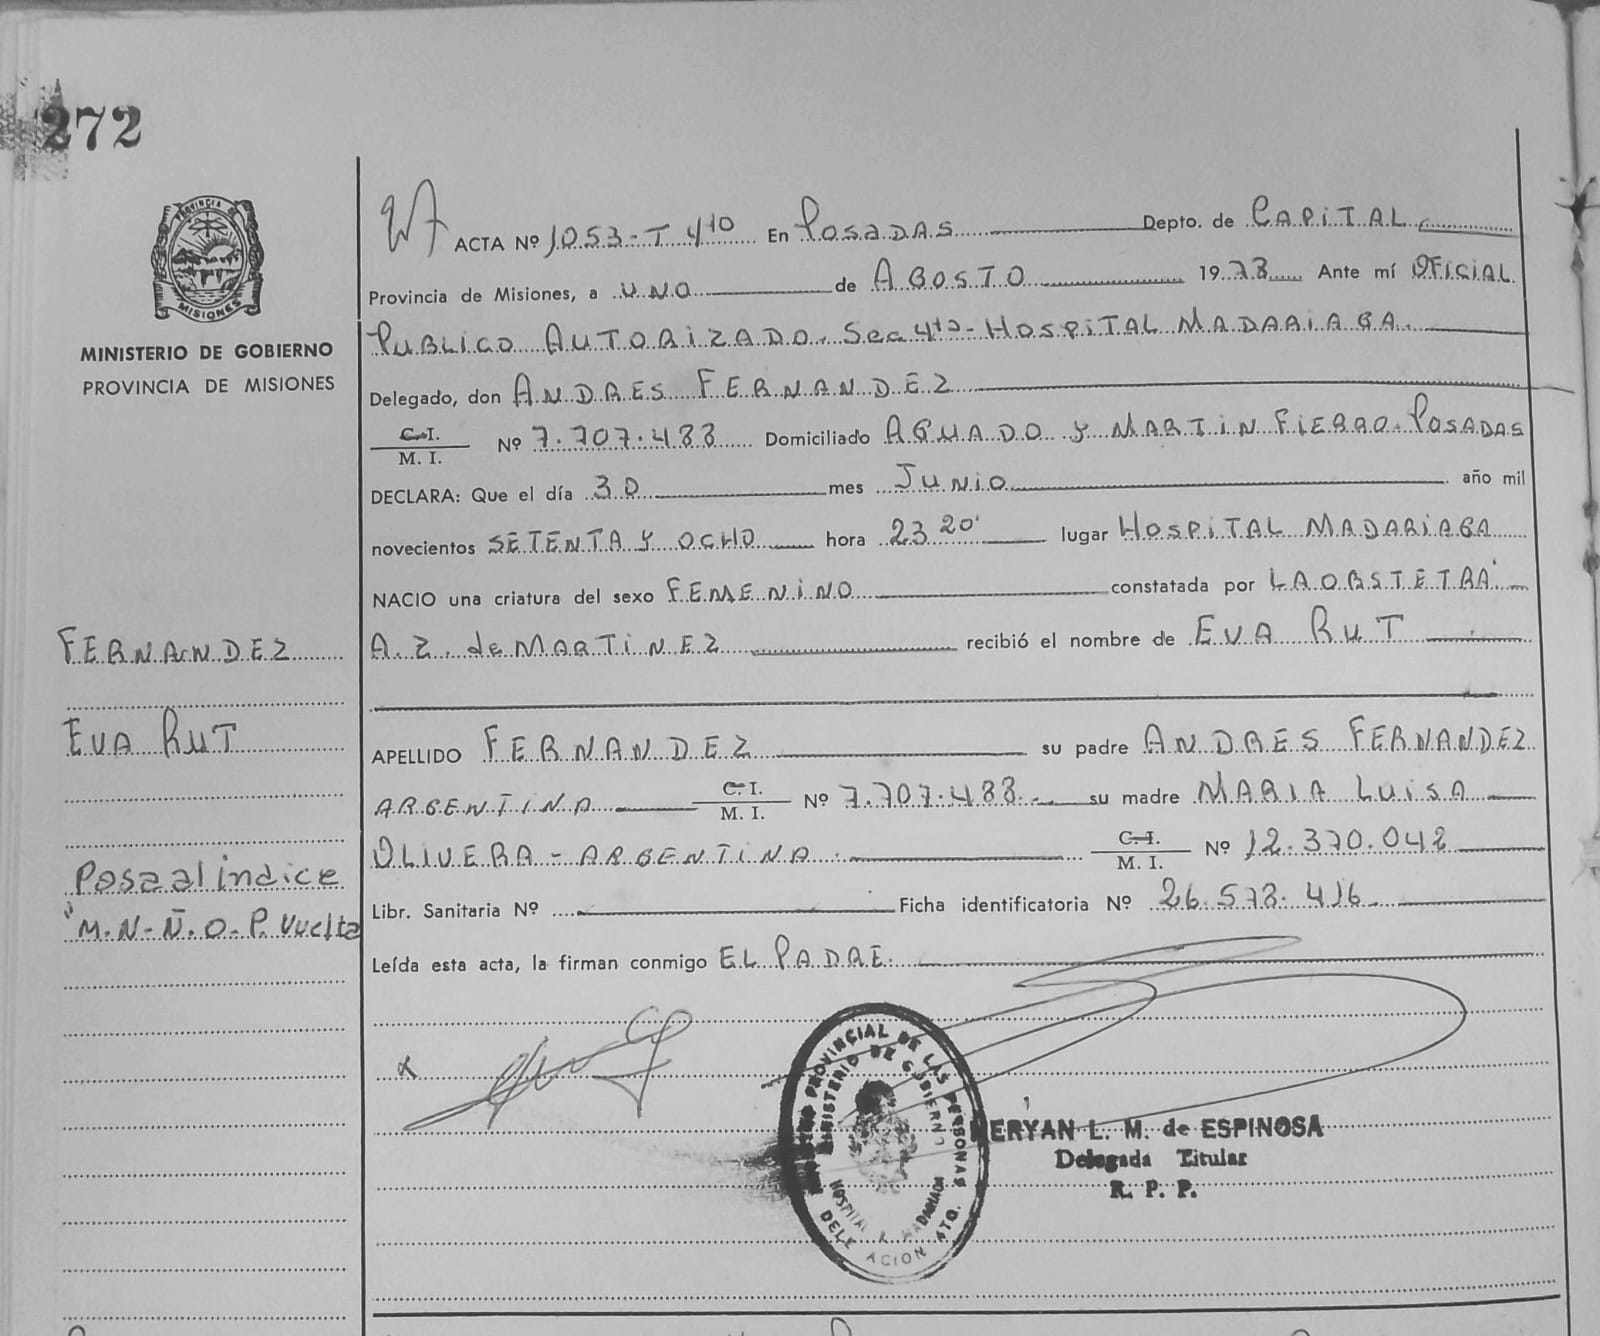 272
PROVINCIA DE
MISIONES
MINISTERIO DE GOBIERNO
PROVINCIA DE MISIONES
ACTA Nº 1053-T 4to En POSADAS Depto. de CAPITAL
Provincia de Misiones, a UNO de AGOSTO 1978 Ante mí OFICIAL
PUBLICO AUTORIZADO. Sec 4ta- HOSPITAL MADARIAGA.
Delegado, don ANDRES FERNANDEZ
C.I.
M. I. Nº 7.707.488 Domiciliado AGUADO Y MARTIN FIERRO-POSADAS
DECLARA: Que el día 30 mes JUNIO año mil
novecientos SETENTA Y OCHO hora 23 20' lugar HOSPITAL MADARIAGA
NACIO una criatura del sexo FEMENINO constatada por LA OBSTETRA
A. Z. de MARTINEZ recibió el nombre de EVA RUT
APELLIDO FERNANDEZ su padre ANDRES FERNANDEZ
ARGENTINA C. I. M. I. Nº 7.707.488 su madre MARIA LUISA
OLIVERA - ARGENTINA C.I. M. I. Nº 12.370.042
Libr. Sanitaria Nº Ficha identificatoria Nº 26.578.416
Leída esta acta, la firman conmigo EL PADRE.
FERNANDEZ
EVA RUT
Pasa al índice
"M.N-Ñ.O-P. Vuelta
PROVINCIAL DE LAS PERSONAS
MINISTERIO DE GOBIERNO
HOSPITAL R. MADARIAGA
DELEGACION 4TO.
NERYAN L. M. de ESPINOSA
Delegada Titular
R. P. P.